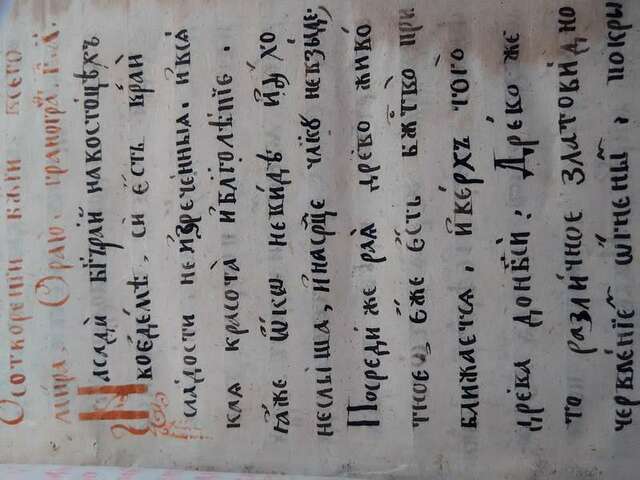 Ѻсоткорении каѧи ксего
миⷬра. Ѻ раю. гранограⷴ. г҃. д҃.
Насади бг҃ъ рай на костоцѣхъ
коедемѣ, си єсть край
сладости неизреченныѧ, и ксѧ
каѧ красота и благолѣпїе.
еѧже ѻко некидѣ и ꙋхо
неслыша, и насрⷣце члкꙋ невзыде,
Посреди же раѧ дреко жико
тное, еже есть бжⷭ҇тко при
ближаетсѧ, и керхъ того
дрека донб҃си, Дреко же
то различное златокидно
черкленїеⷨ ѻгненыⷨ, покры